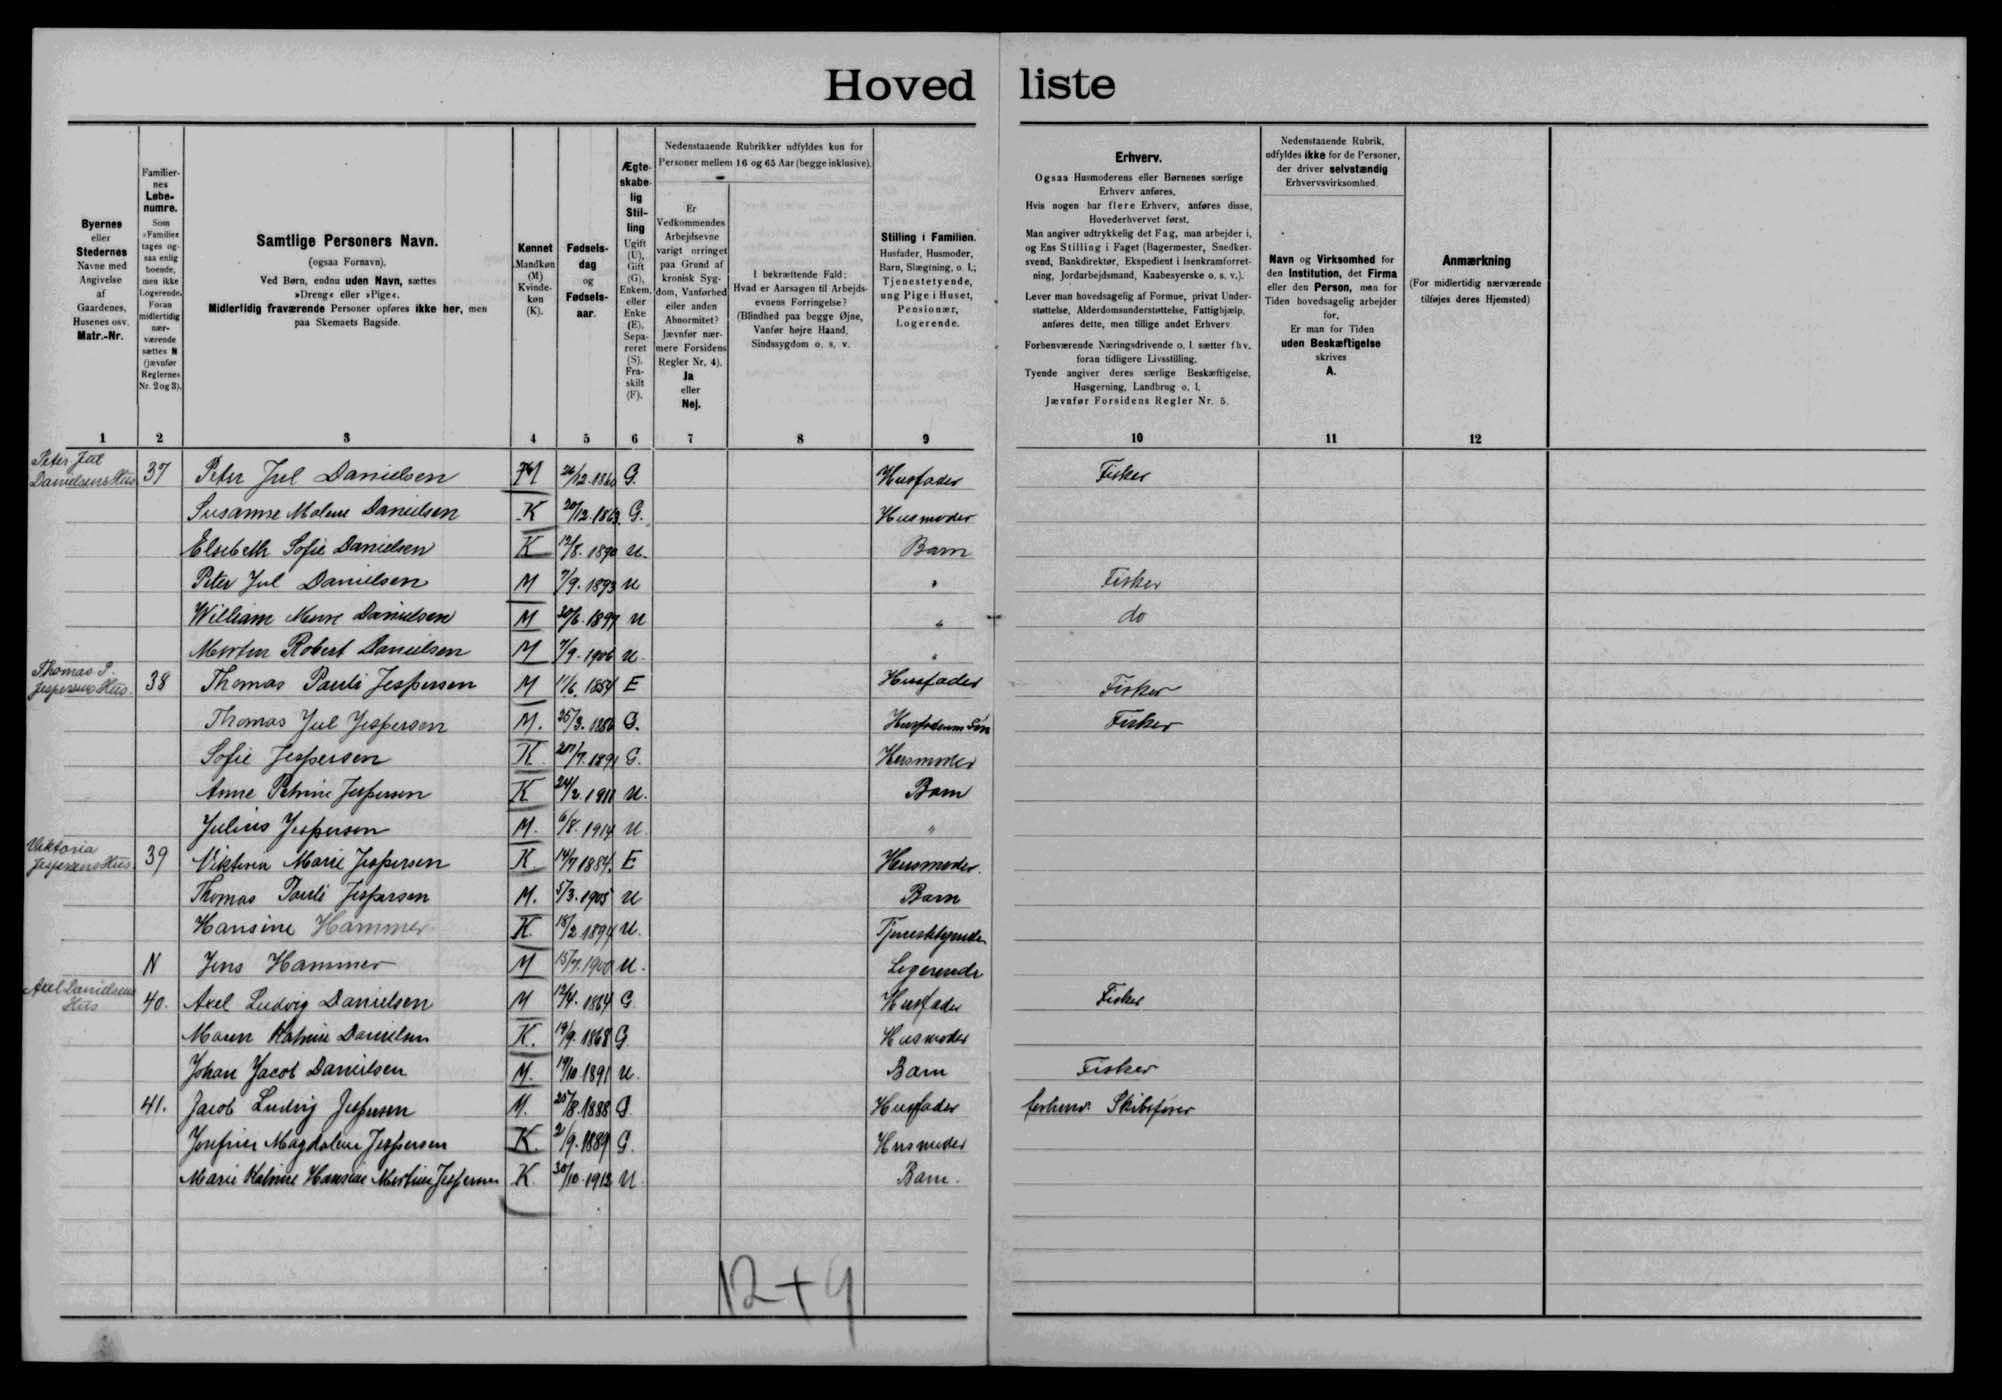 Hovedliste
Byernes
eller
Stedernes
Navne med
Angivelse
af
Gaardenes,
Husenes osv.
Matr.-Nr.
Familiernes
Løbenumre.
Som
»Familie«
tages ogsaa enlig
boende,
men ikke
Logerende.
Foran
midlertidig
nærværende
sættes N
(jævnfør
Reglernes
Nr. 2 og 3).
Samtlige Personers Navn.
(ogsaa Fornavn).
Ved Børn, endnu uden Navn, sættes
»Dreng« eller »Pige«.
Midlertidig fraværende Personer opføres ikke her, men
paa Skemaets Bagside.
Kønnet
Mandkøn
(M)
Kvindekøn
(K).
Fødselsdag
og
Fødselsaar.
Ægteskabelig
Stilling
Ugift
(U),
Gift
(G),
Enkem.
eller
Enke
(E),
Separeret
(S).
Fraskilt
(F).
Nedenstaaende Rubrikker udfyldes kun for
Personer mellem 16 og 65 Aar (begge inklusive).
Er
Vedkommendes
Arbejdsevne
varigt forringet
paa Grund af
kronisk Sygdom, Vanførhed
eller anden
Abnormitet?
Jævnfør nærmere Forsidens
Regler Nr. 4).
Ja
eller
Nej.
I bekræftende Fald:
Hvad er Aarsagen til Arbejdsevnens Forringelse?
(Blindhed paa begge Øjne,
Vanfør højre Haand,
Sindssygdom o. s. v.
Stilling i Familien.
Husfader, Husmoder,
Barn, Slægtning, o. l.;
Tjenestetyende,
ung Pige i Huset,
Pensionær,
Logerende.
Erhverv.
Ogsaa Husmoderens eller Børnenes særlige
Erhverv anføres.
Hvis nogen har flere Erhverv, anføres disse,
Hovederhvervet først.
Man angiver udtrykkelig det Fag, man arbejder i,
og Ens Stilling i Faget (Bagermester, Snedkersvend, Bankdirektør, Ekspedient i Isenkramforretning, Jordarbejdsmand, Kaabesyerske o. s. v.).
Lever man hovedsagelig af Formue, privat Understøttelse, Alderdomsunderstøttelse, Fattighjælp,
anføres dette, men tillige andet Erhverv.
Forhenværende Næringsdrivende o. l. sætter fhv.
foran tidligere Livsstilling.
Tyende angiver deres særlige Beskæftigelse,
Husgerning, Landbrug o. l.
Jævnfør Forsidens Regler Nr. 5.
Nedenstaaende Rubrik,
udfyldes ikke for de Personer,
der driver selvstændig
Erhvervsvirksomhed.
Navn og Virksomhed for
den Institution, det Firma
eller den Person, man for
Tiden hovedsagelig arbejder
for.
Er man for Tiden
uden Beskæftigelse
skrives
A.
Anmærkning
(For midlertidig nærværende
tilføjes deres Hjemsted)
1 2 3 4 5 6 7 8 9 10 11 12
Peter Jul
Danielsens Hus 37 Peter Jul Danielsen M 26/12.1860 G. Husfader Fisker
Susanne Malene Danielsen K 20/12.1863 G. Husmoder
Elsebeth Sofie Danielsen K 12/8.1890 U. Barn
Peter Jul Danielsen M 7/9.1893 U " Fisker
William Danielsen M 20/6.1897 U " do
Morten Robert Danielsen M 7/9.1906 U. "
Thomas P.
Jespersens Hus. 38 Thomas Pauli Jespersen M 11/6.1854 E Husfader Fisker
Thomas Jul Jespersen M. 25/3.1886 G. Husfaderens Søn Fisker
Sofie Jespersen K. 20/7.1891 G. Husmoder
Anne Petrine Jespersen K 24/2 1911 U. Barn
Julius Jespersen M. 6/8.1914 U "
Viktoria
Jespersens Hus. 39 Viktoria Marie Jespersen K. 14/7 1884. E Husmoder.
Thomas Pauli Jespersen M. 5/3.1905 U Barn
Hansine Hammer K. 18/2 1894 U. Tjenestetyende
N Jens Hammer M 15/7.1900 U. Logerende
Axel Danielsens
Hus 40. Axel Ludvig Danielsen M 12/4.1864 G Husfader Fisker
Maren Katrine Danielsen K. 19/9.1868 G. Husmoder
Johan Jacob Danielsen M. 19/10 1891 U. Barn Fisker
41. Jacob Ludvig Jespersen M. 25/8.1888 G Husfader forhenv. Skibsfører
Josefine Magdalene Jespersen K. 2/9.1889 G. Husmoder
Marie Katrine Hansine Martine Jespersen K. 30/10.1912 U Barn.
12+9